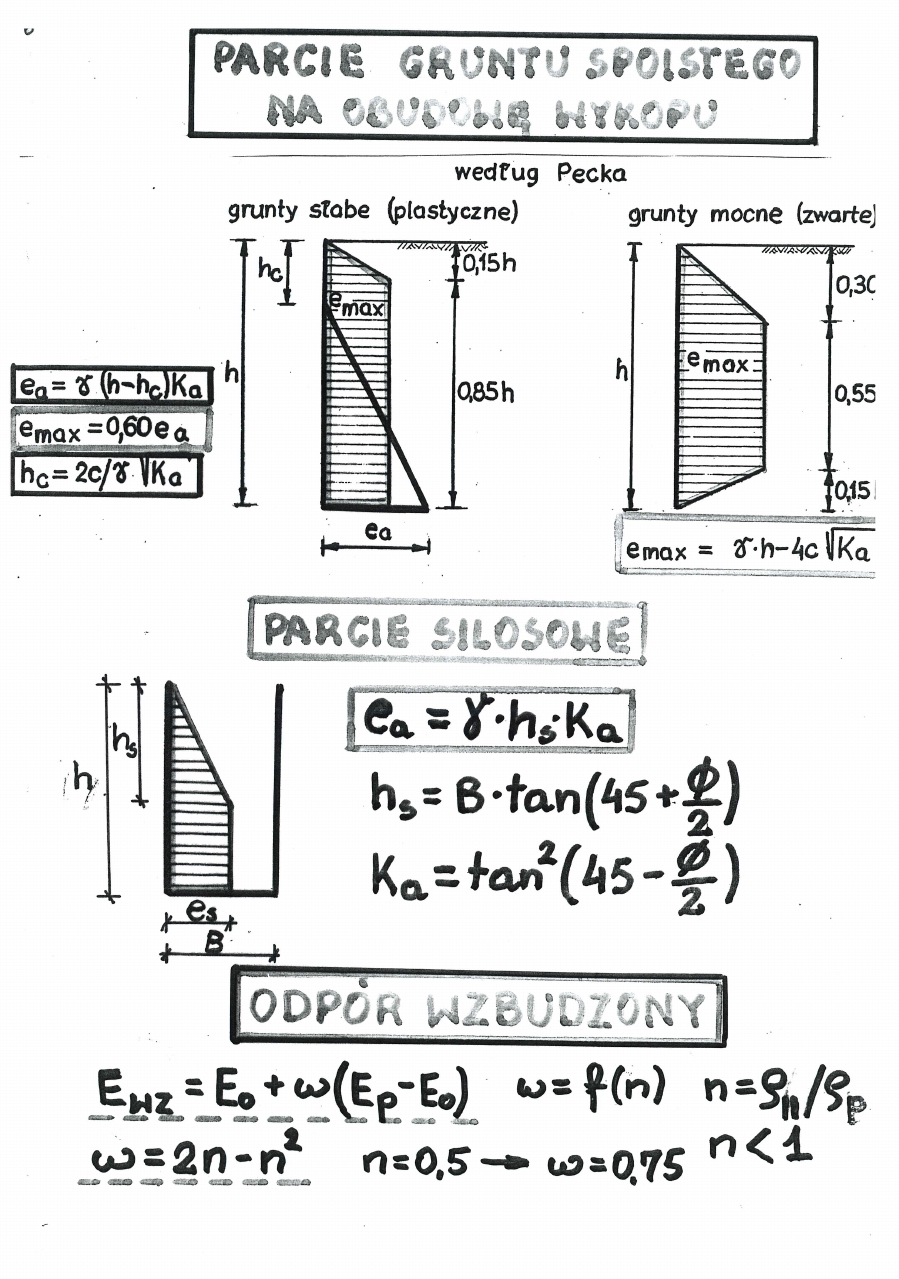 PARCIE GRUNTU SPOISTEGO
NA OBUDOWĘ WYKOPU
według Pecka
grunty słabe (plastyczne)
grunty mocne (zwarte)
hc
0,15h
emax
h
0,85h
ea
ea = γ (h-hc)Ka
emax = 0,60ea
hc = 2c/γ √Ka
0,30
emax
h
0,55
0,15
emax = γ·h-4c√Ka
PARCIE SILOSOWE
h
hs
es
B
ea = γ·hs·Ka
hs = B·tan(45+φ/2)
Ka = tan²(45-φ/2)
ODPÓR WZBUDZONY
EWZ = Eo + ω(Ep-Eo) ω = f(n) n = ρn/ρp
ω = 2n-n² n=0,5 → ω=0,75 n<1